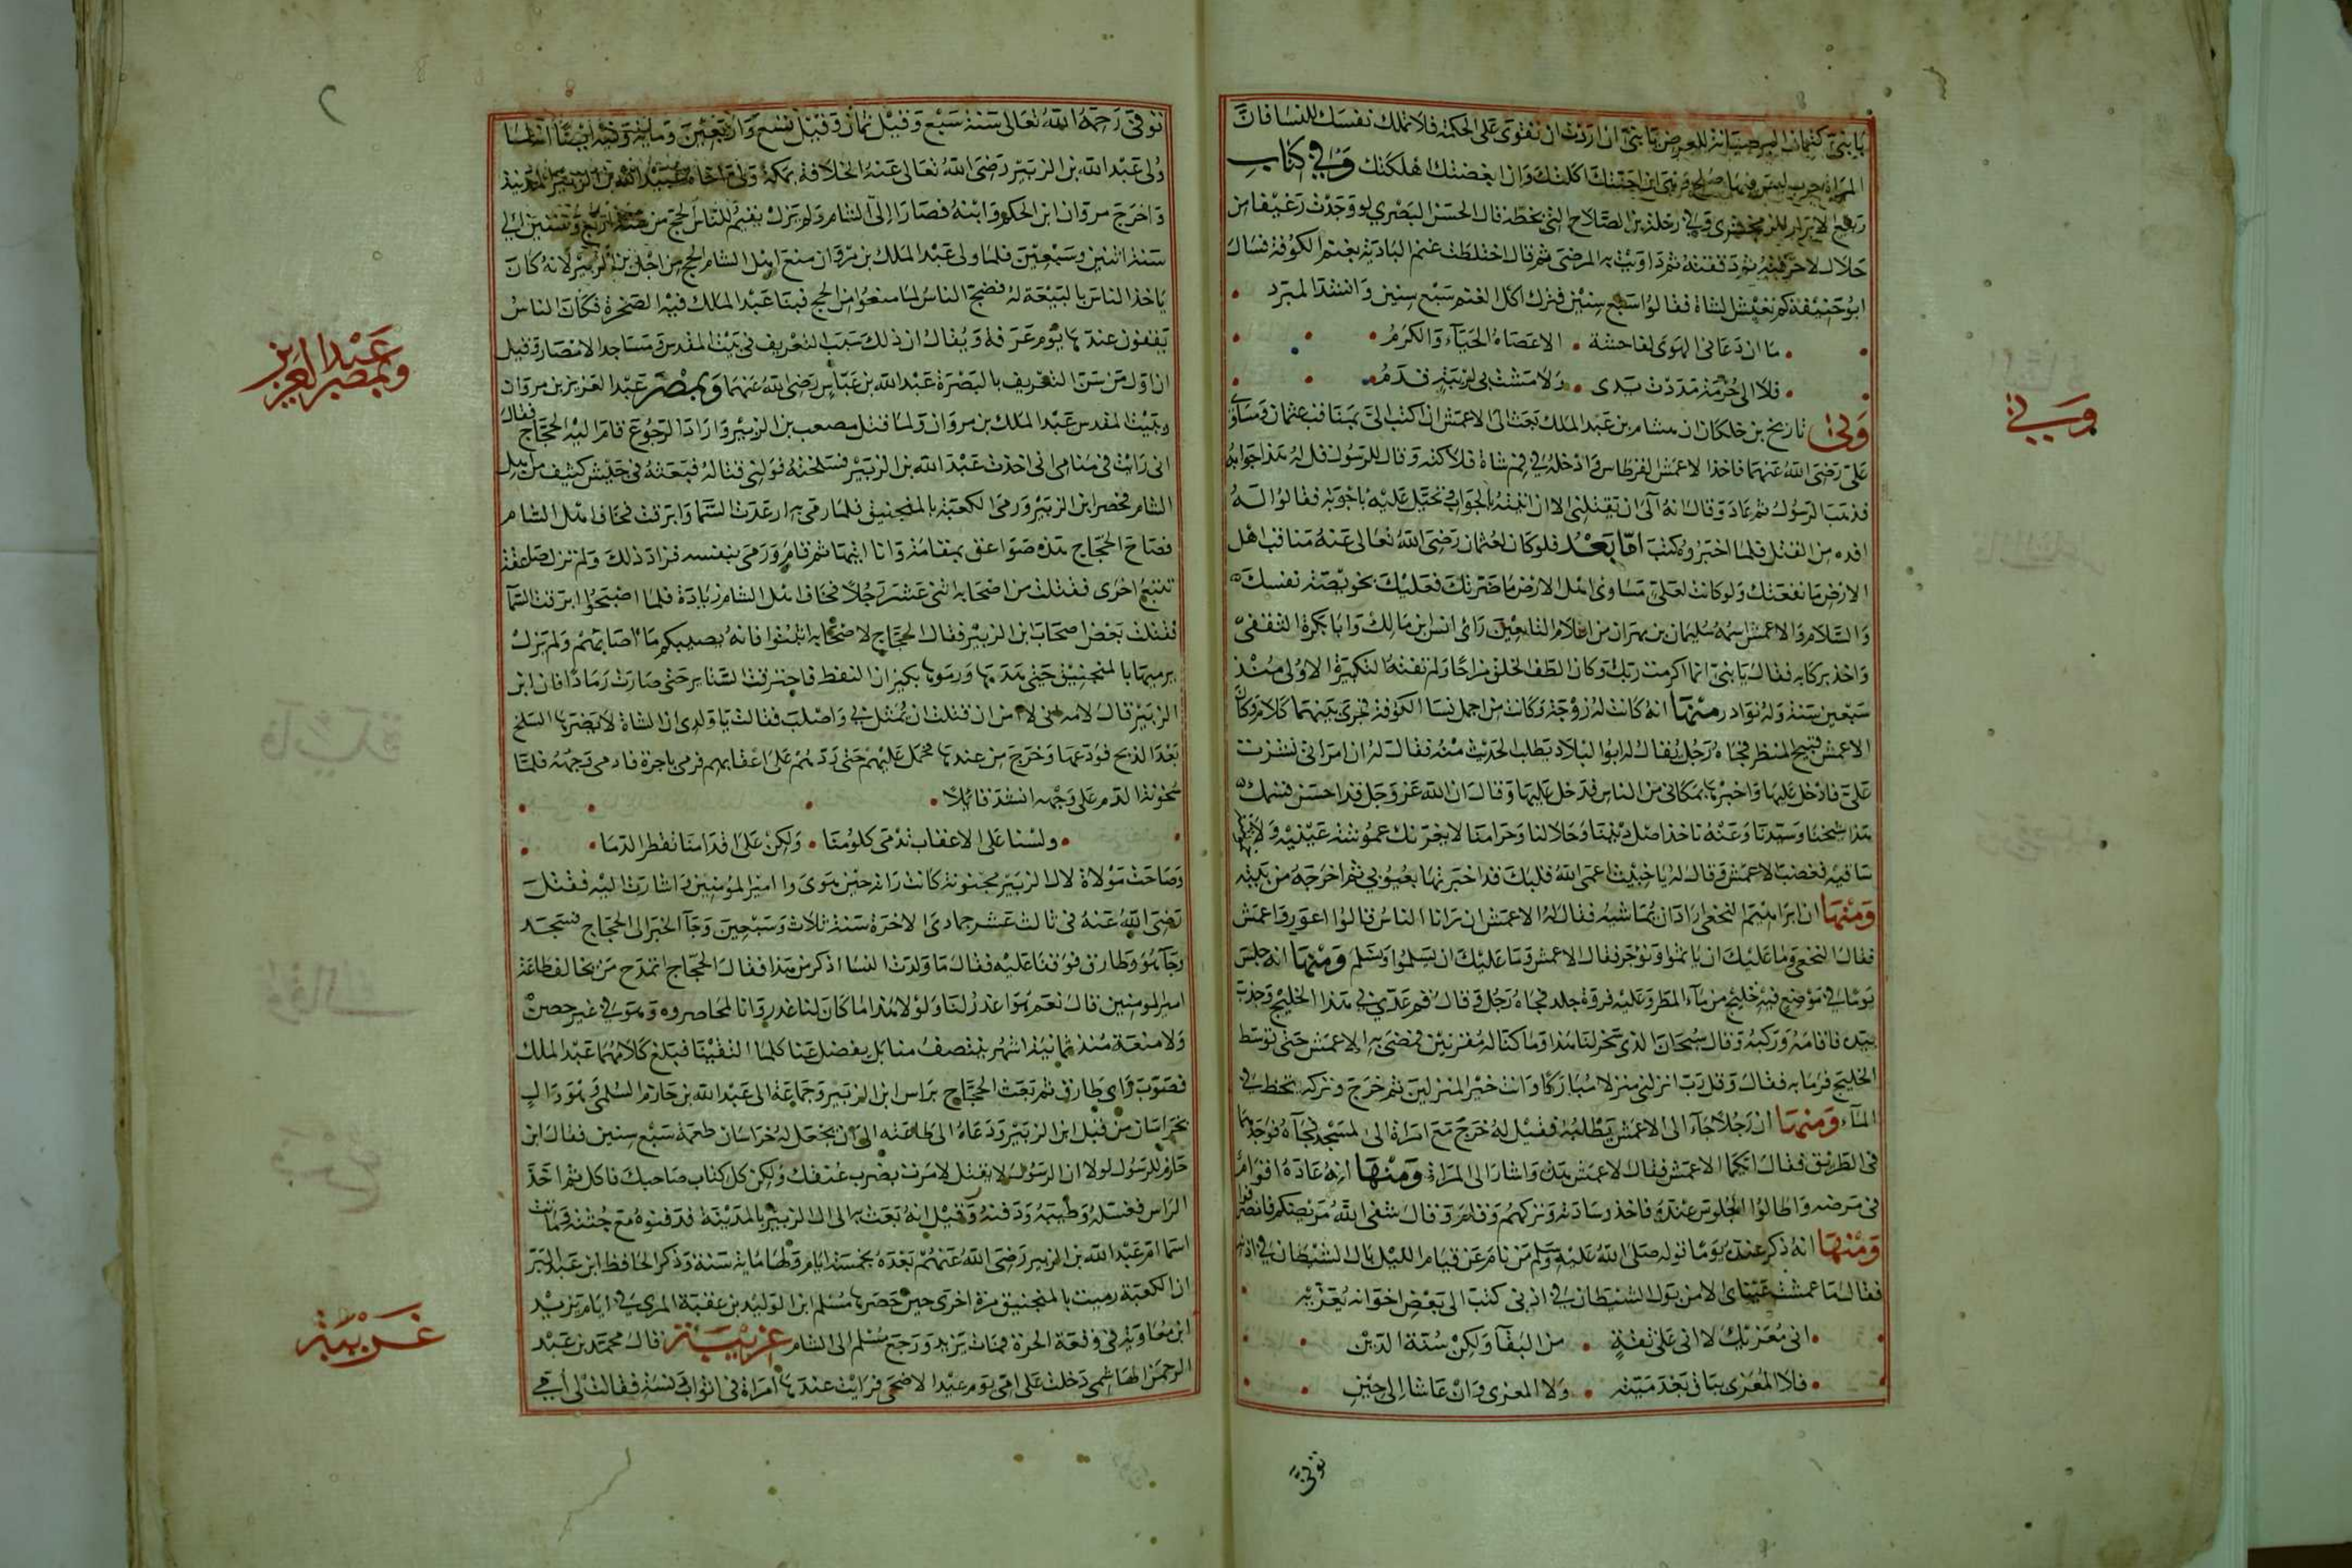 يا بني كتمان السر صيانة للعرض يا بني ان اردت ان تقوى على الحكمة فلا تملك نفسك للنسا فان
المراة حرب ليس فيها صلح وهي ان احبتك اكلتك وان ابغضتك اهلكتك وفي كتاب
ربيع الابرار للزمخشري وفي رحلة بن الصلاح التي بخطه قال الحسن البصري لو وجدت رغيفا من
حلال لاحرقته ثم دققته ثم داويت به المرضى ثم قال اختلطت غنم البادية بغنم الكوفة فسال
ابو حنيفة كم تعيش الشاة فقالوا سبع سنين فترك اكل الغنم سبع سنين وانشد المبرد
ما ان دعاني الهوى لفاحشة الا عصاه الحياء والكرم
فلا الى حرمة مددت يدي ولا مشت بي لريبة قدم
وفي تاريخ بن خلكان ان هشام بن عبد الملك بعث الى الاعمش ان اكتب الي بمناقب عثمان ومساوي
علي رضي الله عنهما فاخذ الاعمش القرطاس وادخله في فم شاة فلاكته وقال للرسول قل له هذا جوابه
فذهب الرسول ثم عاد وقال انه آلى ان يقتلني الا ان اتيته بالجواب فتحيل عليه باخوته فقالوا له
افده من القتل فلما اخبروه كتب اما بعد فلو كان لعثمان رضي الله تعالى عنه مناقب اهل
الارض ما نفعتك ولو كانت لعلي مساوئ اهل الارض ما ضرتك فعليك بخويصة نفسك
والسلام والاعمش اسمه سليمان بن مهران من اعلام التابعين راى انس بن مالك وابا بكرة الثقفي
واخذ بركابه فقال يا بني انما اكرمت ربك وكان الطف الخلق مزاحا ولم تفته التكبيرة الاولى منذ
سبعين سنة وله نوادر منها انه كانت له زوجة وكانت من اجمل نسا الكوفة فجرى بينهما كلام وكان
الاعمش قبيح المنظر فجاه رجل يقال له ابو البلاد يطلب الحديث منه فقال له ان امراتي نشزت
علي فادخل عليها واخبرها بمكاني من الناس فدخل عليها وقال ان الله عز وجل قد احسن قسمك
هذا شيخنا وسيدنا وعنه ناخذ اصل ديننا وحلالنا وحرامنا لا يغرنك عموشة عينيه ولا
ساقيه فغضب الاعمش وقال له يا خبيث اعمى الله قلبك قد اخبرتها بعيوبي ثم اخرجه من بيته
ومنها ان ابراهيم النخعي اراد ان يماشيه فقال له الاعمش ان رانا الناس قالوا اعور واعمش
فقال النخعي وما عليك ان ياثموا ونوجر فقال الاعمش وما عليك ان يسلموا ونسلم ومنها انه جلس
يوما في موضع فيه خليج من ماء المطر وعليه فروة جلد فجاه رجل وقال قم عدني في هذا الخليج وجذب
بيده فاقامه وركبه وقال سبحان الذي سخر لنا هذا وما كنا له مقرنين فمضى به الاعمش حتى توسط
الخليج فرما به فقال وقل رب انزلني منزلا مباركا وانت خير المنزلين ثم خرج وتركه يتخبط في
الماء ومنها ان رجلا جاء الى الاعمش يطلبه فقيل له خرج مع امراة الى المسجد فجآه فوجدهما
في الطريق فقال ايكما الاعمش فقال الاعمش هذه واشار الى المراة ومنها انه عاده اقوام
في مرضه واطالوا الجلوس عنده فاخذ وسادته وتركهم وقام وقال شفى الله مريضكم فانصرفوا
ومنها انه ذكر عنده يوما قوله صلى الله عليه وسلم من نام عن قيام الليل بال الشيطان في اذنه
فقال ما عمشت عيناى الا من بول الشيطان في اذني كتب الى بعض اخوانه يعزيه
اني معزيك لا اني على ثقة من البقآ ولكن سنة الدين
فلا المعزى بباق بعد ميته ولا المعزي وان عاشا الى حين
وفي
توفي
توفي رحمه الله تعالى سنة سبع وقيل ثمان وقيل تسع واربعين وماية وفيه ايضا انه لما
ولى عبد الله بن الزبير رضي الله تعالى عنه الخلافة بمكة ولى اخاه عبيد الله بن الزبير المدينة
واخرج مروان ابن الحكم وابنه فصارا الى الشام ولم يزل يقيم للناس الحج من سنة اربع وستين الى
سنة اثنين وسبعين فلما ولى عبد الملك بن مروان منع اهل الشام الحج من اجل بن الزبير لانه كان
ياخذ الناس بالبيعة له فضج الناس لما منعوا من الحج فبنا عبد الملك قبة الصخرة فكان الناس
يقفون عندها يوم عرفة ويقال ان ذلك سبب التعريف في بيت المقدس ومساجد الامصار وقيل
ان اول من سن التعريف بالبصرة عبد الله بن عباس رضي الله عنهما وبمصر عبد العزيز بن مروان
وببيت المقدس عبد الملك بن مروان ولما قتل مصعب بن الزبير واراد الرجوع قام اليه الحجاج فقال
اني رايت في منامي اني اخذت عبد الله بن الزبير فسلخته فولني قتاله فبعثه في جيش كثيف من اهل
الشام فحصر ابن الزبير ورمى الكعبة بالمنجنيق فلما رمى به ارعدت السما وابرقت فخاف اهل الشام
فصاح الحجاج هذه صواعق تهامة وانا ابنها ثم قام ورمى بنفسه فزاد ذلك ولم تزل صاعقة
تتبع اخرى فقتلت من اصحابه اثنى عشر رجلا فخاف اهل الشام زيادة فلما اصبحوا ابرقت السمآ
فقتلت بعض اصحاب ابن الزبير فقال الحجاج لاصحابه اثبتوا فانه يصيبكم ما اصابهم ولم يزل
يرميها بالمنجنيق حتى هدمها ورموها بكيزان النفط فاحترقت الستاير حتى صارت رمادا فان ابن
الزبير قال لامه ان قتلت ان يمثل بي واصلب فقالت يا ولدى ان الشاة لا يضرها السلخ
بعد الذبح فودعها وخرج من عندها فحمل عليهم حتى ردهم على اعقابهم فرمي باجرة فادمي وجهه فلما
سخونة الدم على وجهه انشد قائلا
ولسنا على الاعقاب تدمى كلومنا ولكن على اقدامنا تقطر الدما
وصاحت مولاة لال الزبير مجنونة كانت راته حين هوى وا امير المؤمنين واشارت اليه فقتل
رضي الله عنه في ثالث عشر جمادى الاخرة سنة ثلاث وسبعين وجآ الخبر الى الحجاج فسجد
وجآ هو وطارق فوقفا عليه فقال ما ولدت النسا اذكر من هذا فقال الحجاج اتمدح من يخالف طاعة
امير المومنين قال نعم هو اعذر لنا ولولا هذا ما كان لنا عذر وانا لمحاصروه وهو في غير حصن
ولا منعة منذ ثمانية اشهر ينتصف منا بل يفضل عنا كلما التقينا فبلغ كلامهما عبد الملك
فصوب راي طارق ثم بعث الحجاج براس ابن الزبير وجماعة الى عبد الله بن حازم السلمي وهو وال
بخراسان من قبل ابن الزبير ودعاه الى طاعته الى ان يجعل له خراسان طعمة سبع سنين فقال ابن
حازم للرسول لولا ان الرسول لا يقتل لامرت بضرب عنقك ولكن كل كتاب صاحبك فاكل ثم اخذ
الراس فغسله وطيبه ودفنه وقيل انه بعث به الى ال الزبير بالمدينة فدفنوه مع جثته وماتت
اسما ام عبد الله بن الزبير رضي الله عنهم بعده بخمسة ايام ولها ماية سنة وذكر الحافظ ابن عبد البر
ان الكعبة رميت بالمنجنيق مرة اخرى حين حصرها مسلم ابن الوليد بن عقبة المري في ايام يزيد
ابن معاوية في وقعة الحرة فمات يزيد ورجع مسلم الى الشام غريبة قال محمد بن عبد
الرحمن الهاشمي دخلت على امي يوم عيد الاضحى فرايت عندها امراة في اثواب دنسة فقالت لي امي
وبمصر عبد العزيز
غريبة